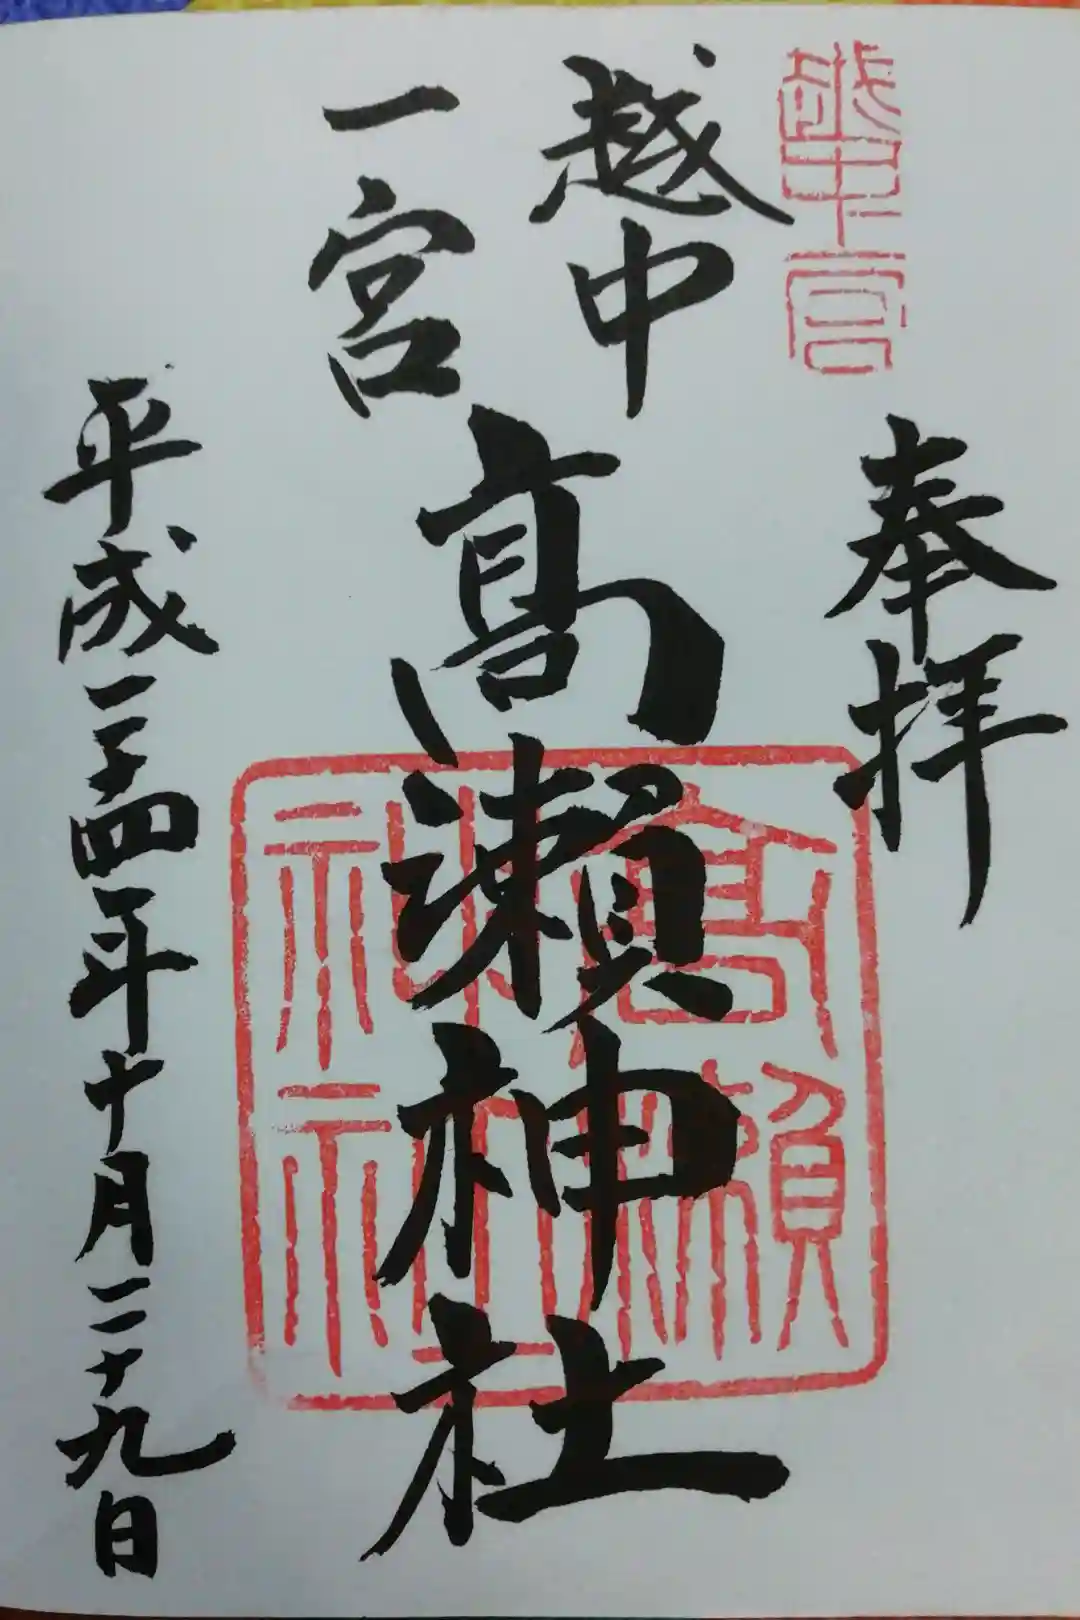 奉拝
越中一宮
越中
一宮
髙瀬神社
高瀬神社
平成二十四年十月二十九日